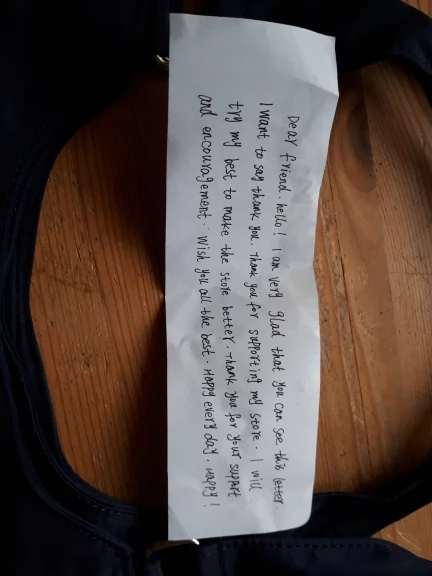 Dear friend. hello! I am very glad that you can see this letter.
I want to say thank you. Thank you for supporting my store. I will
try my best to make the store better. Thank you for your support
and encouragement. Wish you all the best. Happy every day. Happy!